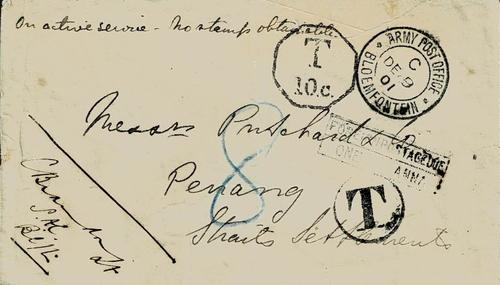 On active service - No stamps obtainable
T
10.c.
ARMY POST OFFICE
C
DE 9
01
BLOEMFONTEIN
Messrs Pritchard & Co
POSTAGE DUE
ONE ANNA
8
Penang
T.
Straits Settlements